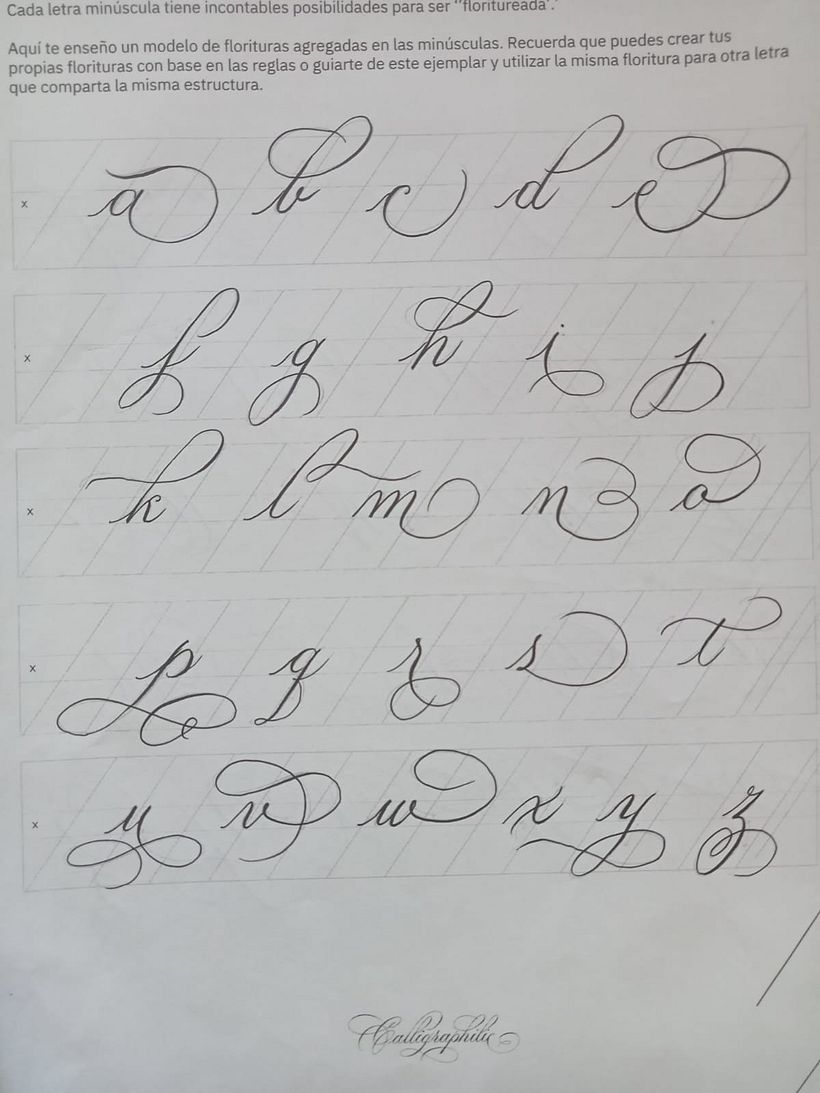 Cada letra minúscula tiene incontables posibilidades para ser "floritureada".
Aquí te enseño un modelo de florituras agregadas en las minúsculas. Recuerda que puedes crear tus
propias florituras con base en las reglas o guiarte de este ejemplar y utilizar la misma floritura para otra letra
que comparta la misma estructura.
x a b c d e
x f g h i j
x k l m n o
x p q r s t
x u v w x y z
Calligraphilic